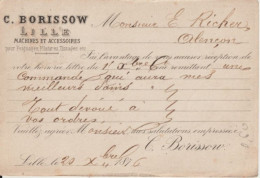 C. BORISSOW
LILLE
MACHINES ET ACCESSOIRES
pour Filatures, Tissages
Monsieur E. Richer
Alençon
J'ai l'avantage de vous accuser réception de
votre lettre du 1er Xbre me remettant une
commande qui aura mes
meilleurs soins
Tout dévoué à
vos ordres
Veuillez agréer Monsieur mes salutations empressées
C. Borissow
Lille le 20 Xbre 1876